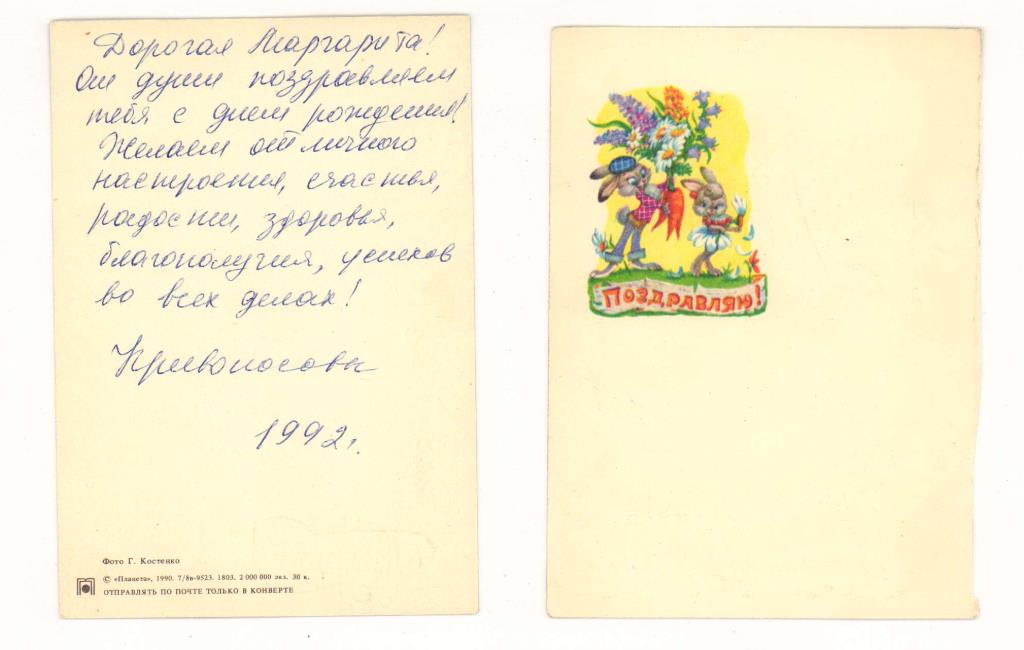 Дорогая Маргарита!
От души поздравляем
тебя с днем рождения!
Желаем отличного
настроения, счастья,
радости, здоровья,
благополучия, успехов
во всех делах!
Кривоносовы
1992г.
Фото Г. Костенко
© «Планета», 1990. 7/8в-9523. 1803. 2 000 000 экз. 30 к.
ОТПРАВЛЯТЬ ПО ПОЧТЕ ТОЛЬКО В КОНВЕРТЕ
ПОЗДРАВЛЯЮ!